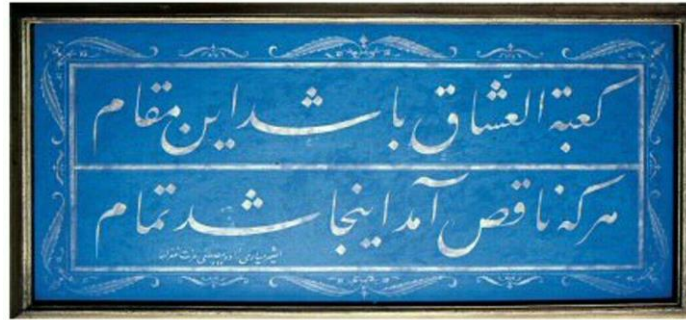 كعبة العشّاق باشد اين مقام
هركه ناقص آمد اينجا شد تمام